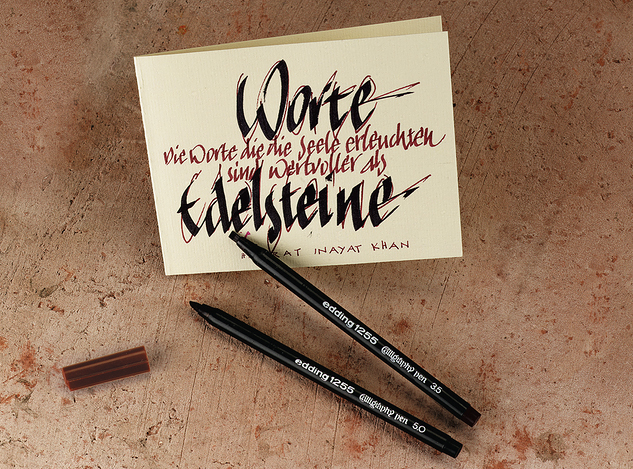 Worte
Die Worte die die Seele erleuchten
sind wertvoller als
Edelsteine
INAYAT KHAN
edding 1255 calligraphy pen 3.5
edding 1255 calligraphy pen 5.0